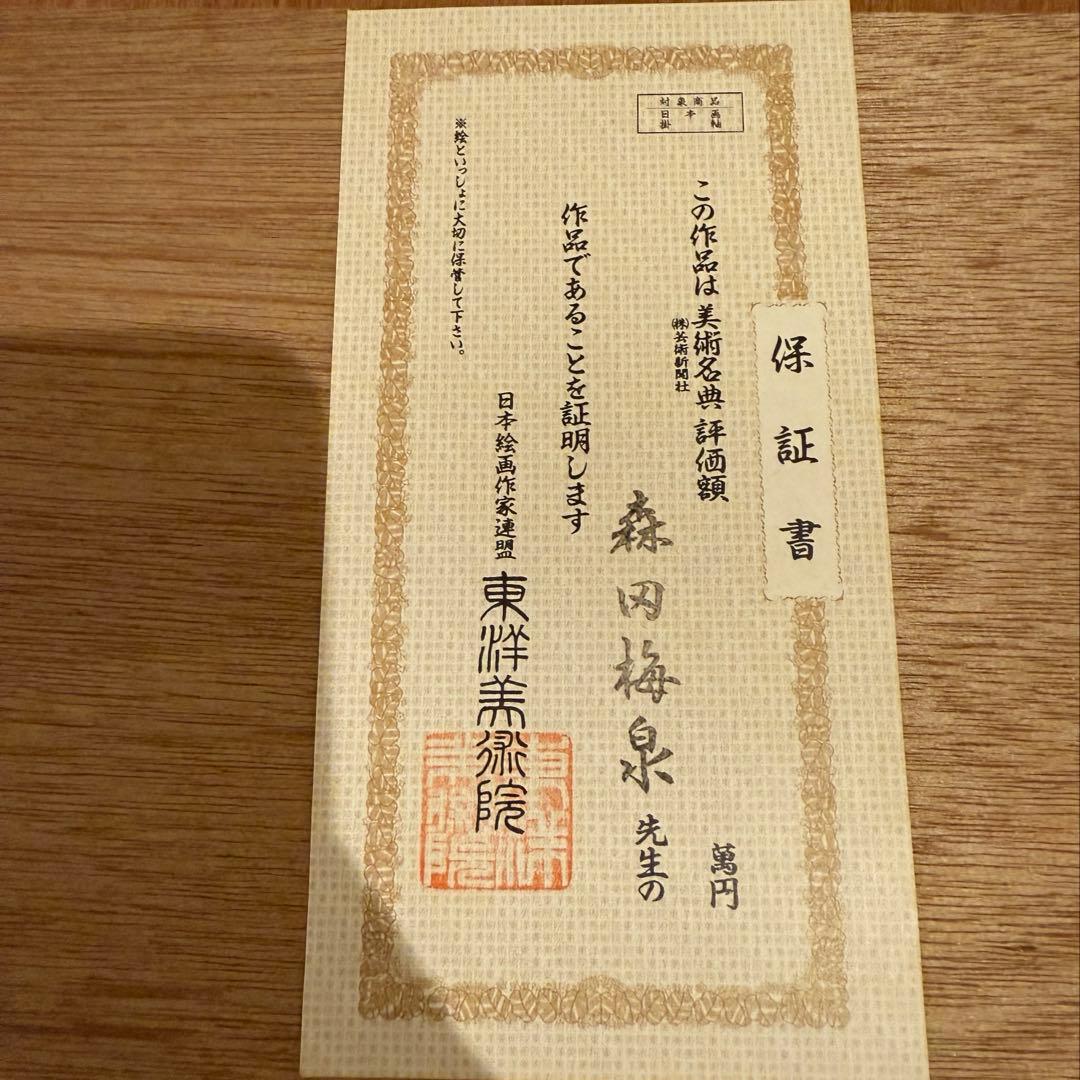 保証書
対象商品
日本画
掛軸
この作品は美術名典評価額 萬円
㈱芸術新聞社
森田梅泉先生の
作品であることを証明します
日本絵画作家連盟 東洋美術院
※絵といっしょに大切に保管して下さい。